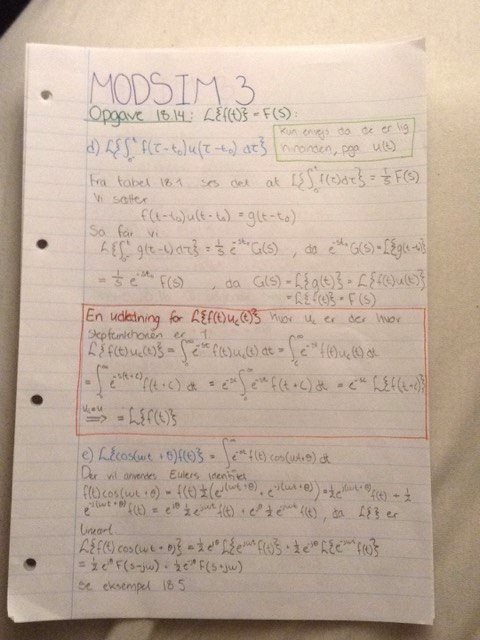 MODSIM 3
Opgave 18.14: L{f(t)} = F(s):
Kun envejs da de er lig
hinanden, pga u(t)
d) L{∫₀ᵗ f(τ-t₀)u(τ-t₀) dτ}
Fra tabel 18.1 ses det at L{∫₀ᵗ f(τ)dτ} = 1/s F(s)
Vi sætter
f(t-t₀)u(t-t₀) = g(t-t₀)
Så får vi
L{∫₀ᵗ g(t-t₀)dτ} = 1/s e^(-st₀) G(s), da e^(-st₀) G(s) = L{g(t-t₀)}
= 1/s e^(-st₀) F(s), da G(s) = L{g(t)} = L{f(t)u(t)}
= L{f(t)} = F(s)
En udledning for L{f(t)u_c(t)} hvor u_c er der hvor
stepfunktionen er 1
L{f(t)u_c(t)} = ∫₀^∞ e^(-st) f(t)u_c(t) dt = ∫_c^∞ e^(-st) f(t)u_c(t) dt
= ∫₀^∞ e^(-s(t+c)) f(t+c) dt = e^(-sc) ∫₀^∞ e^(-st) f(t+c) dt = e^(-sc) L{f(t+c)}
⟹ = L{f(t)}
e) L{cos(ωt + θ)f(t)} = ∫₀^∞ e^(-st) f(t) cos(ωt+θ) dt
Der vil anvendes Eulers identitet
f(t) cos(ωt + θ) = f(t) ½(e^(j(ωt+θ)) + e^(-j(ωt+θ))) = ½ e^(j(ωt+θ)) f(t) + ½
e^(-j(ωt+θ)) f(t) = e^(jθ) ½ e^(jωt) f(t) + e^(-jθ) ½ e^(-jωt) f(t), da L{} er
lineær
L{f(t) cos(ωt + θ)} = ½ e^(jθ) L{e^(jωt) f(t)} + ½ e^(-jθ) L{e^(-jωt) f(t)}
= ½ e^(jθ) F(s-jω) + ½ e^(-jθ) F(s+jω)
Se eksempel 18.5